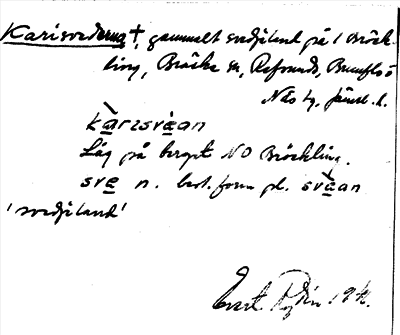 Karisvederna †, gammalt svedjeland på 1 Bräck-
ling, Bräcke sn, Refsunds, Brunflo o
Näs tg, Jämtl. l.
kàrısvä̀an
Låg på berget NO Bräckling.
sve n. best. form pl. svä̀an
'svedjeland'
Evert 19